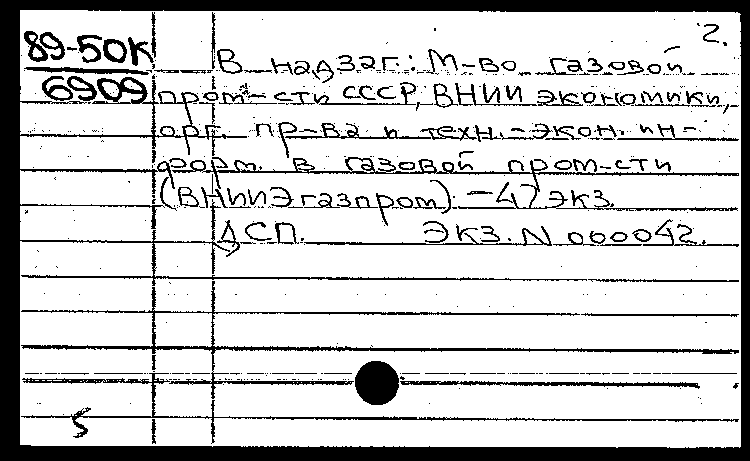 2.
89-50К
6909
В надзаг.: М-во газовой
пром-сти СССР, ВНИИ экономики,
орг. пр-ва и техн.-экон. ин-
форм. в газовой пром-сти
(ВНИИЭгазпром). - 47 экз.
ДСП. Экз. N 000042.
5